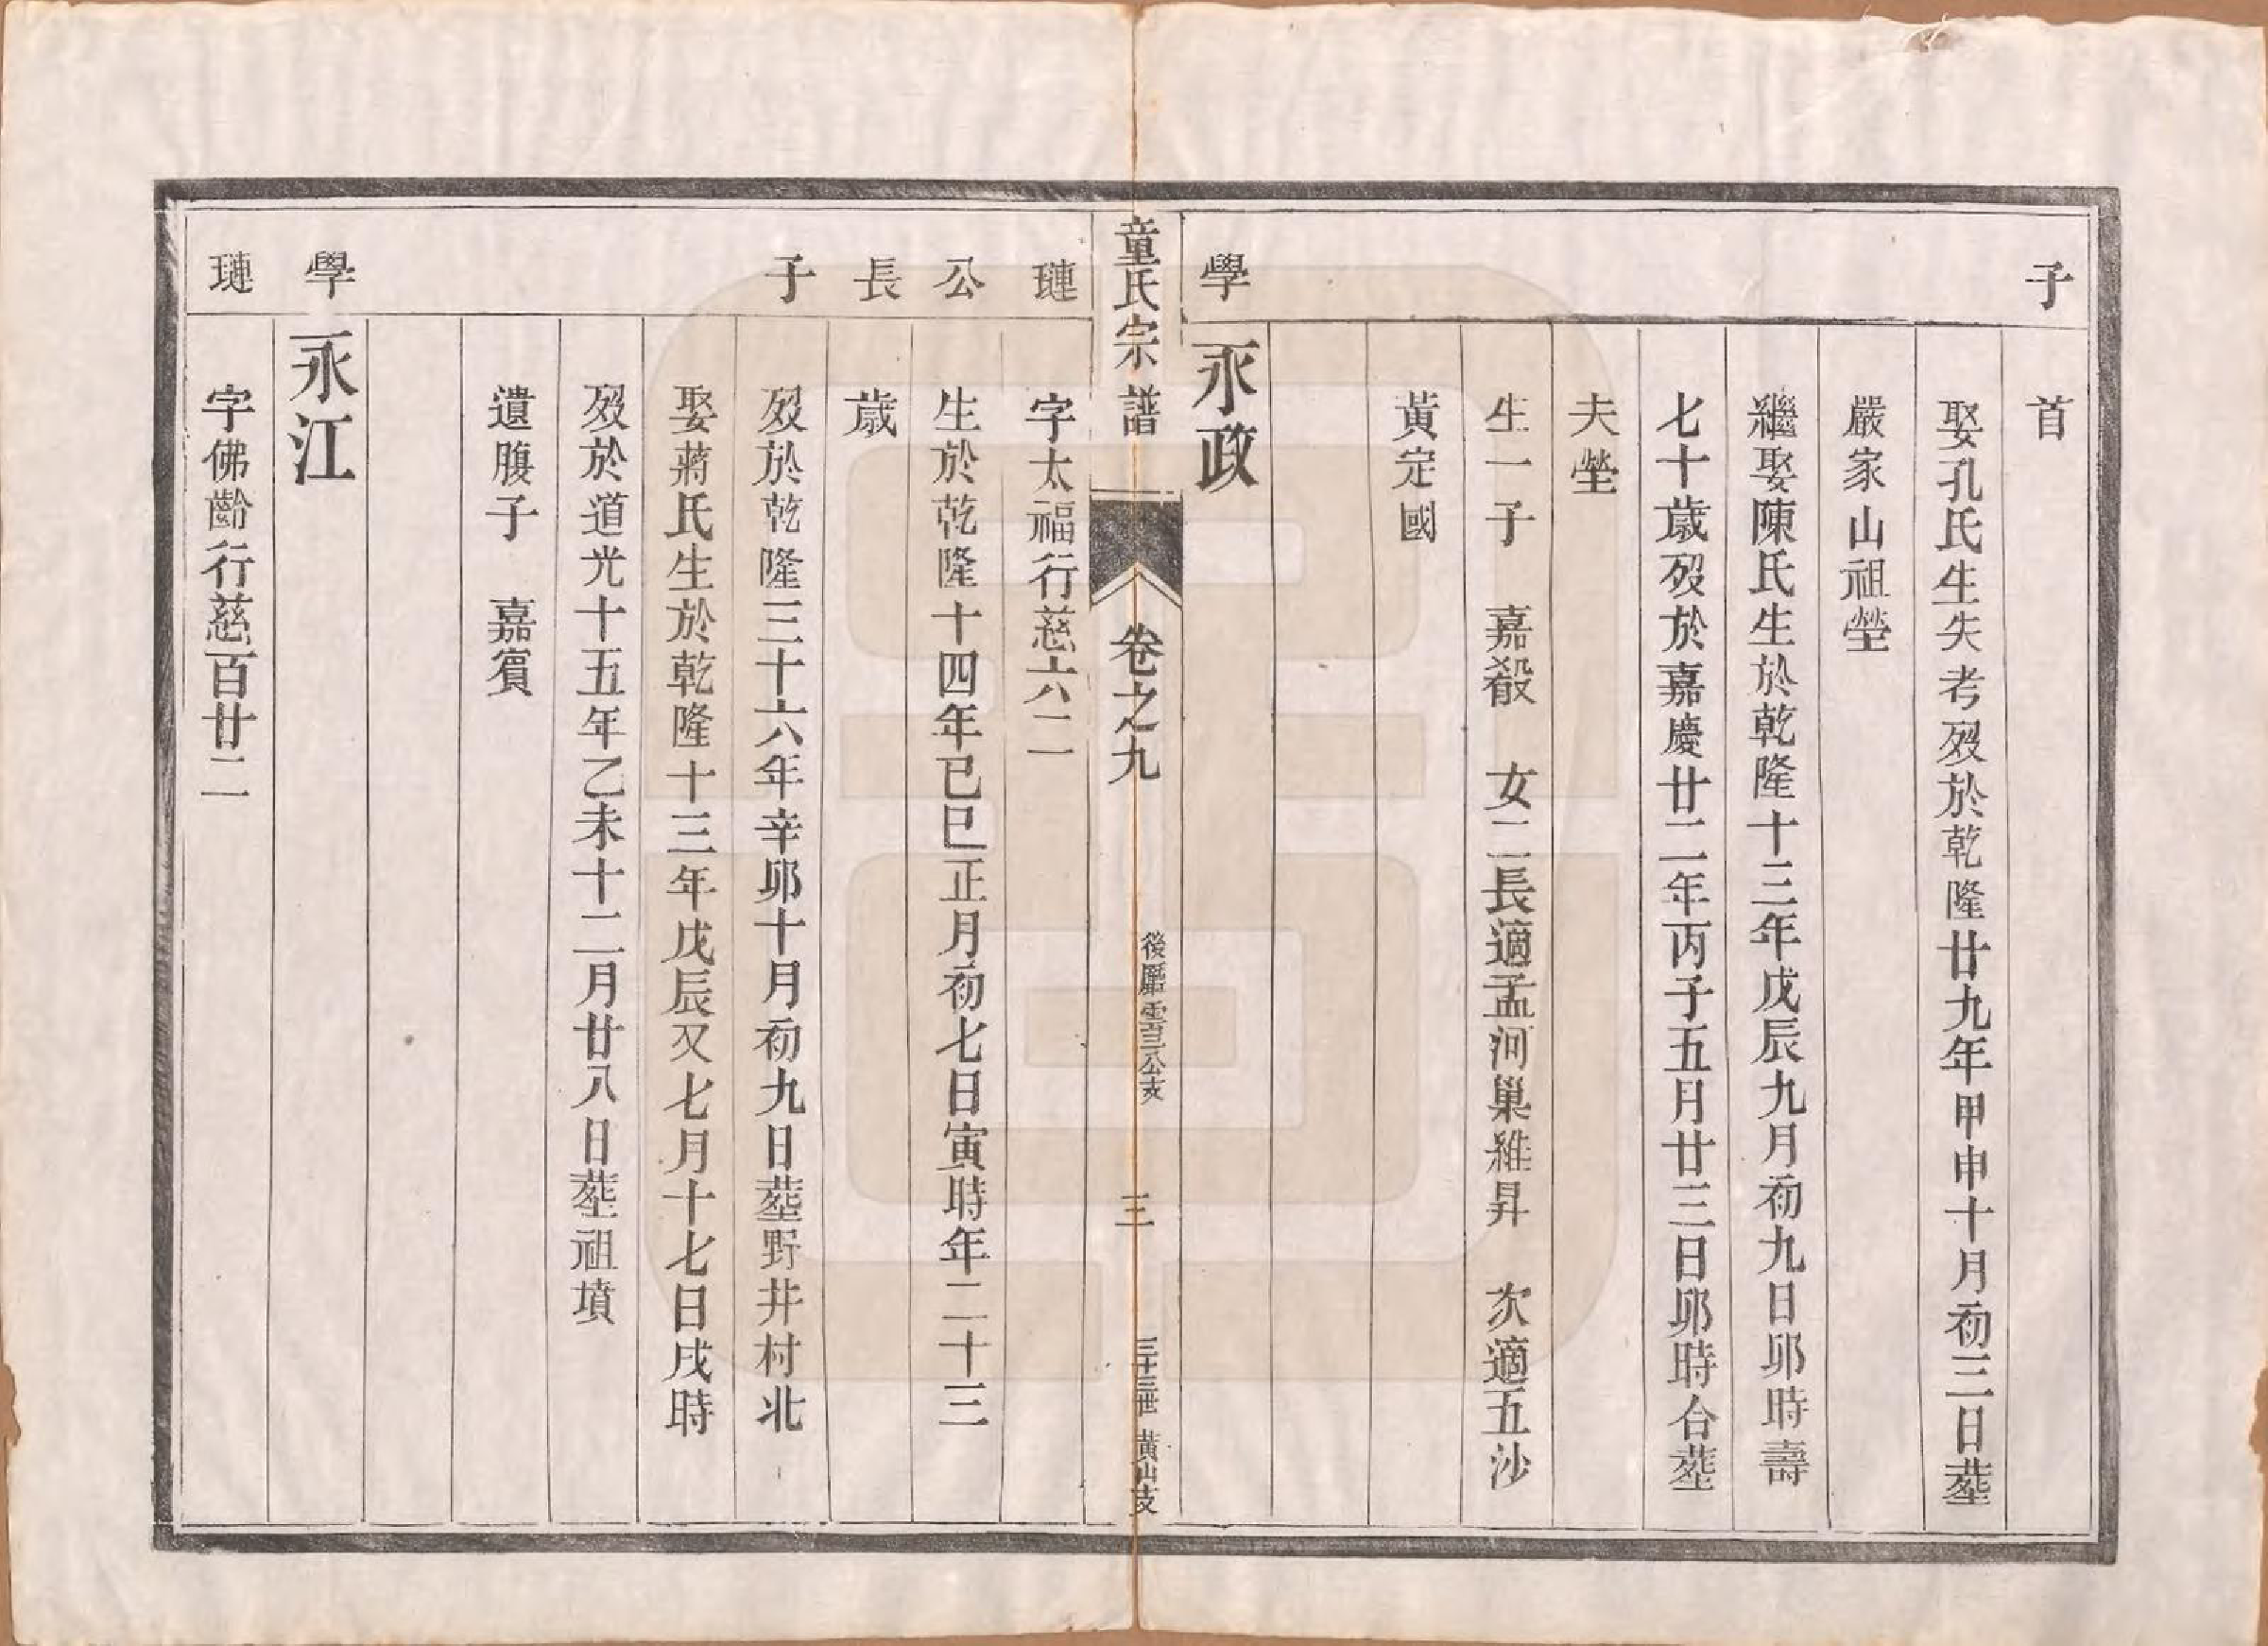 子
首
娶孔氏生失考歿於乾隆廿九年甲申十月初三日塟
嚴家山祖塋
繼娶陳氏生於乾隆十三年戊辰九月初九日卯時壽
七十歲歿於嘉慶廿二年丙子五月廿三日卯時合塟
夫塋
生一子　嘉殽　女二長適孟河巢維昇　次適五沙
黃定國
學
永政
童氏宗譜　卷之九　後厫雲三公支　三　三十三世　黃山支
璉公長子
字太福行慈六二
生於乾隆十四年己巳正月初七日寅時年二十三
歲
歿於乾隆三十六年辛卯十月初九日塟野井村北
娶蔣氏生於乾隆十三年戊辰又七月十七日戌時
歿於道光十五年乙未十二月廿八日塟祖墳
遺腹子　嘉賓
學
永江
璉
字佛齡行慈百廿二